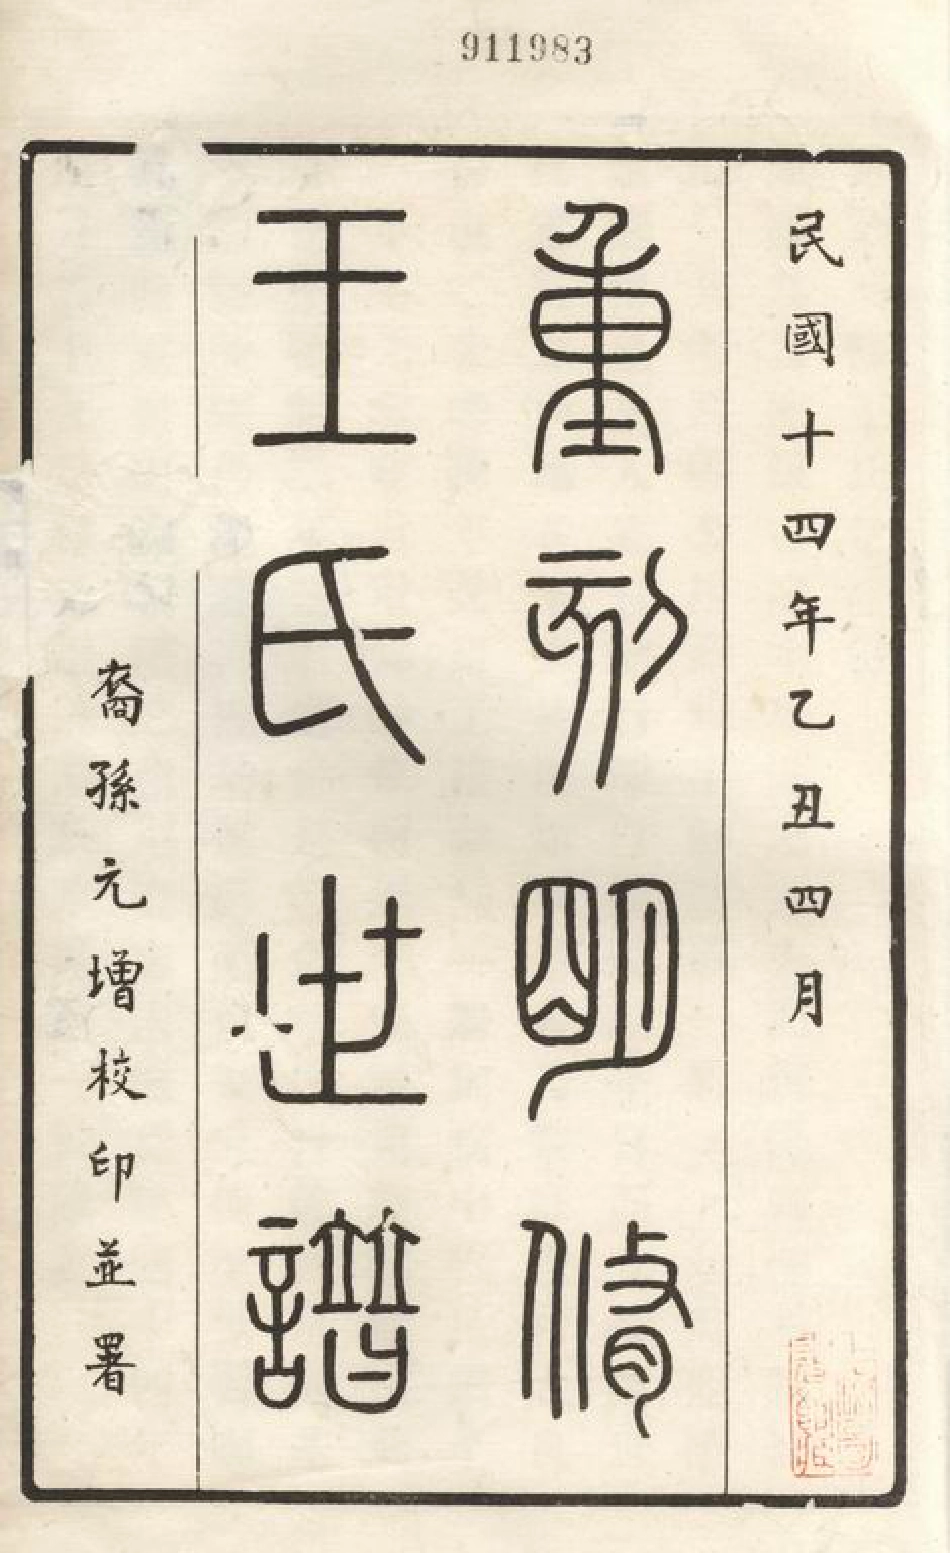 911983
民國十四年乙丑四月
重刻明脩
王氏世譜
裔孫元增校印並署